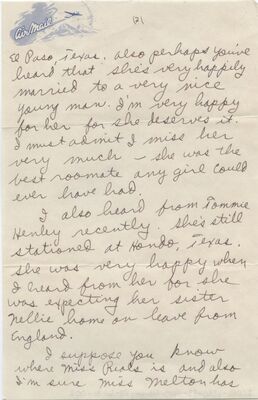 Air Mail
(2)
El Paso, Texas. Also perhaps you've
heard that she's very happily
married to a very nice
young man. I'm very happy
for her for she deserves it.
I must admit I miss her
very much – she was the
best roomate any girl could
ever have had.
I also heard from Tommie
Henley recently. She's still
stationed at Hondo, Texas.
She was very happy when
I heard from her for she
was expecting her sister
Nellie home on leave from
England.
I suppose you know
where Miss Reals is and also
I'm sure Miss Melton has